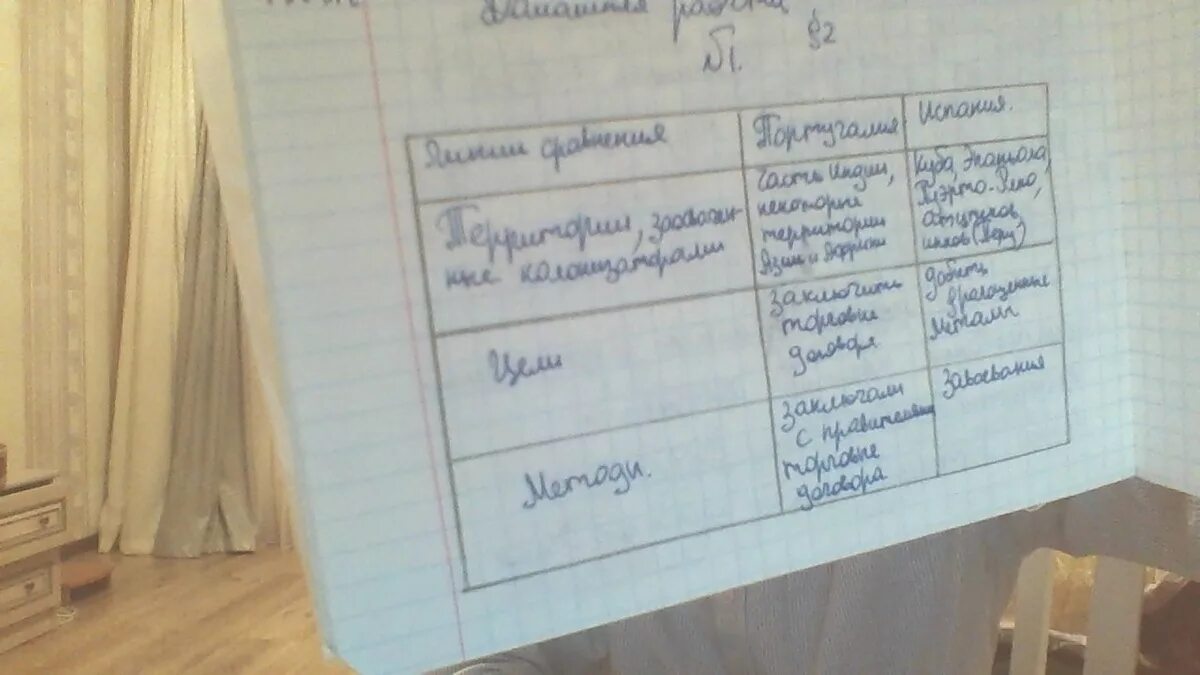 Домашняя работа
№1. §2
Линии сравнения
Португалия
Испания.
Территории, захвачен-
ные колонизаторами
Часть Индии,
некоторые
территории
Азии и Африки
Куба, Эспаньола,
Пуэрто-Рико,
инков (Перу)
Цели
заключить
торговые
договора
добыть
драгоценные
металлы
Методы.
заключали
с правителями
торговые
договора
Завоевания